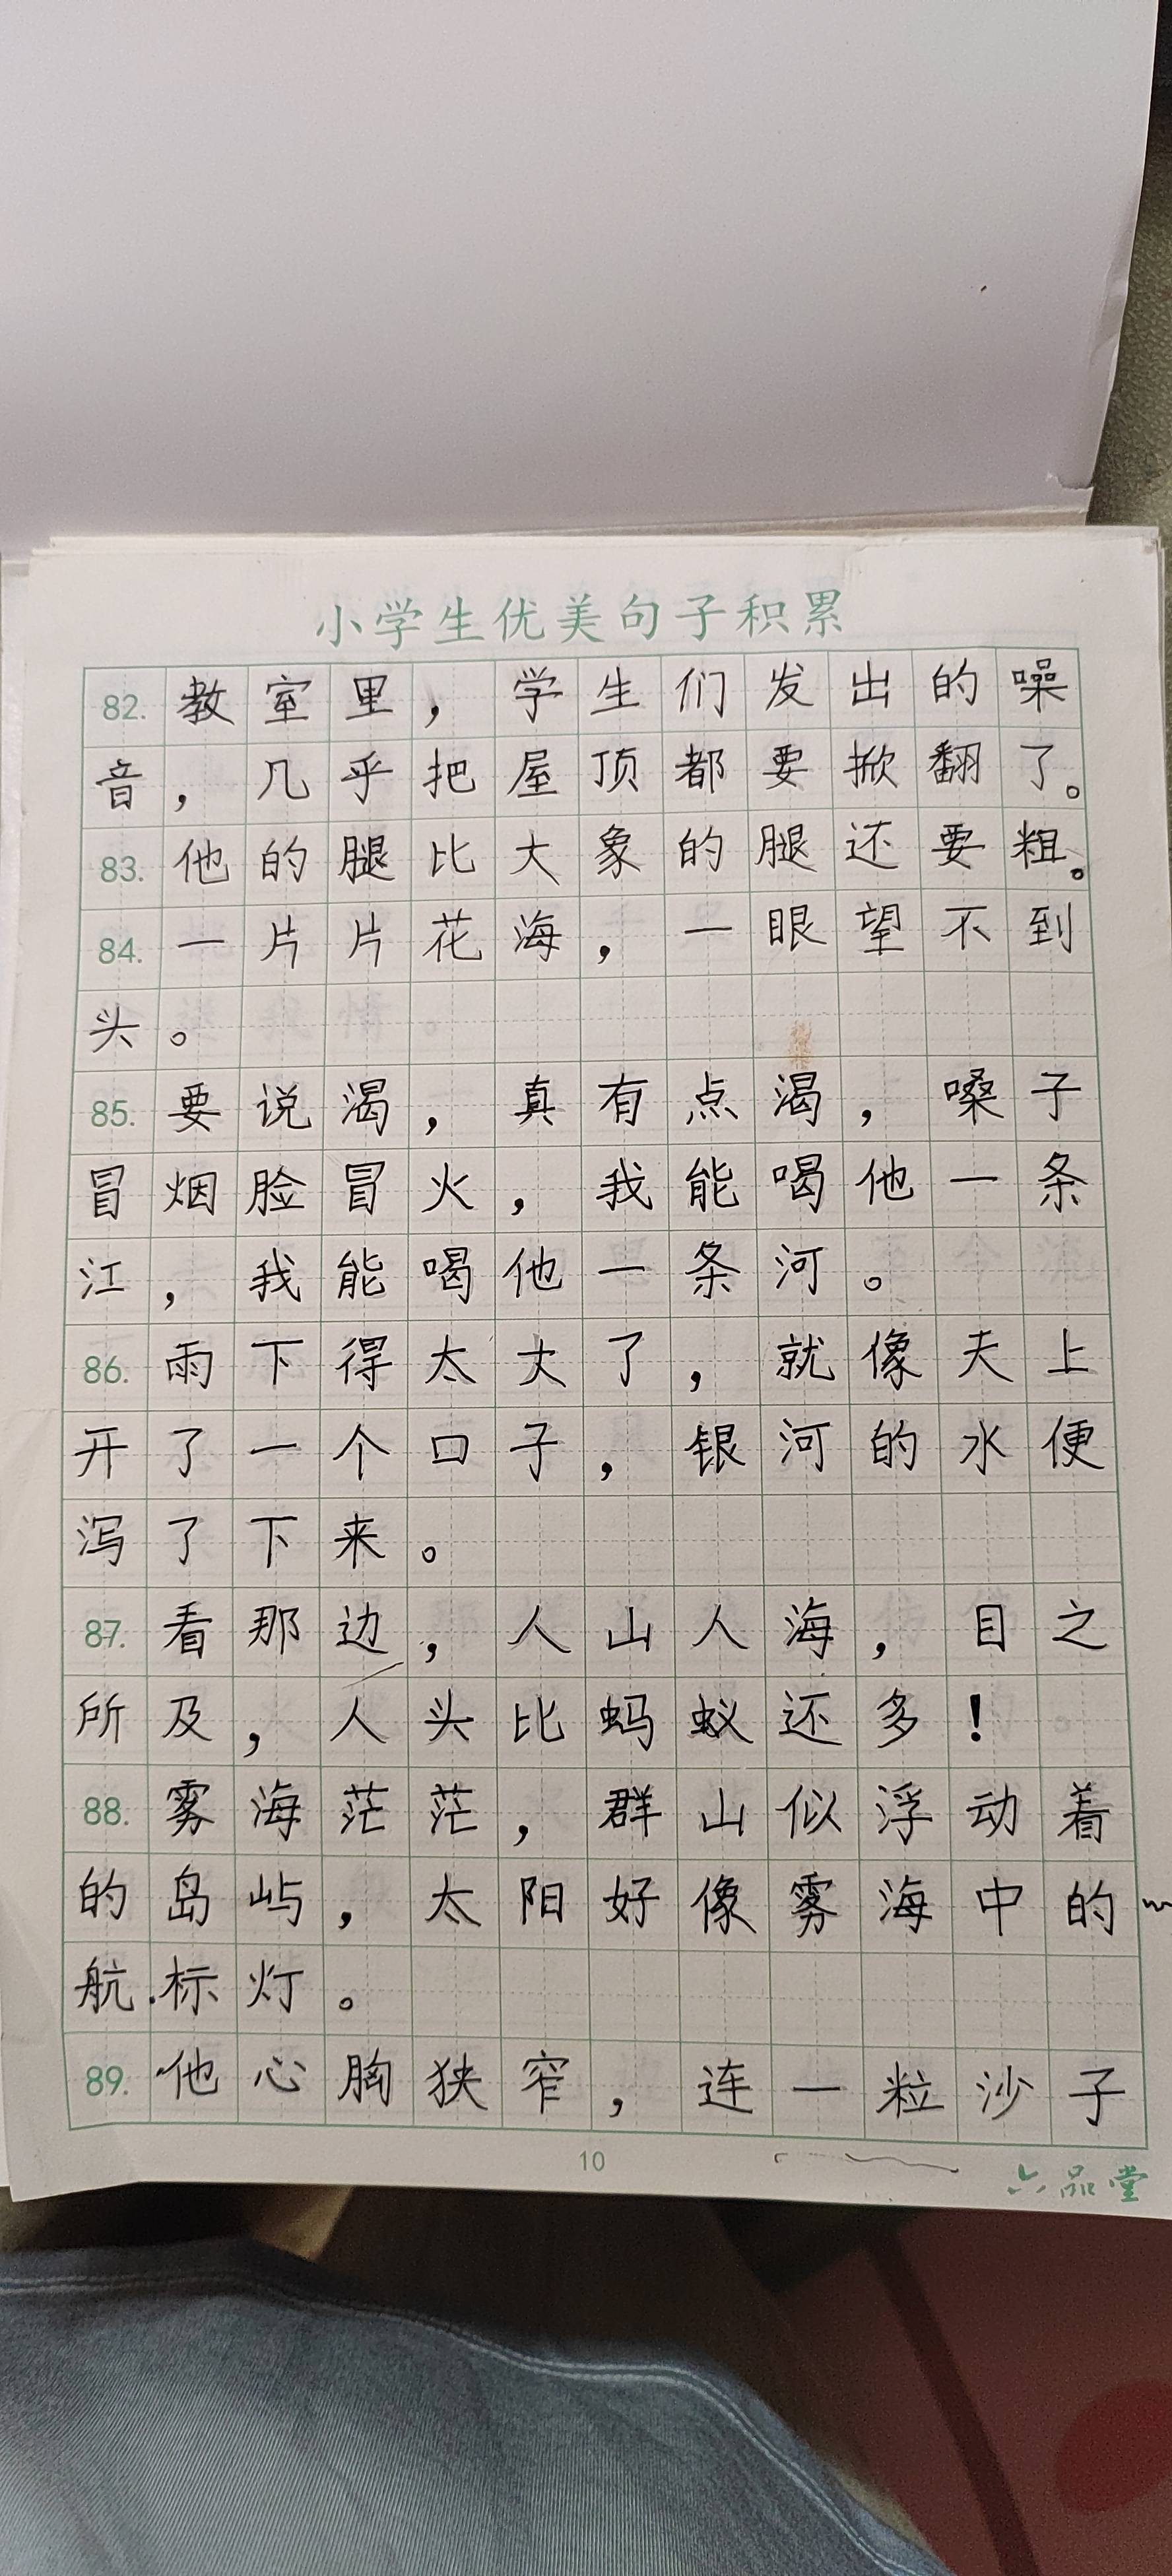 小学生优美句子积累
82.教室里，学生们发出的噪
音，几乎把屋顶都要掀翻了。
83.他的腿比大象的腿还要粗。
84.一片片花海，一眼望不到
头。
85.要说渴，真有点渴，嗓子
冒烟脸冒火，我能喝他一条
江，我能喝他一条河。
86.雨下得太大了，就像天上
开了一个口子，银河的水便
泻了下来。
87.看那边，人山人海，目之
所及，人头比蚂蚁还多！
88.雾海茫茫，群山似浮动着
的岛屿，太阳好像雾海中的
航标灯。
89.他心胸狭窄，连一粒沙子
10
六品堂